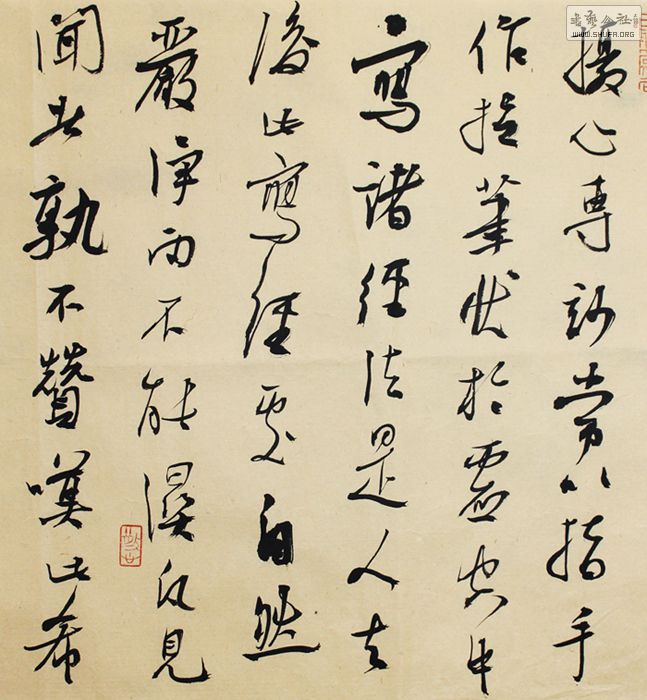 攝心專玅常以指手
作筆狀於虛空中
寫諸經法是人去
後此寫經處自然
嚴淨雨不能濕凡見
聞者孰不贊嘆此希
書藝公社
WWW.SHUFA.ORG